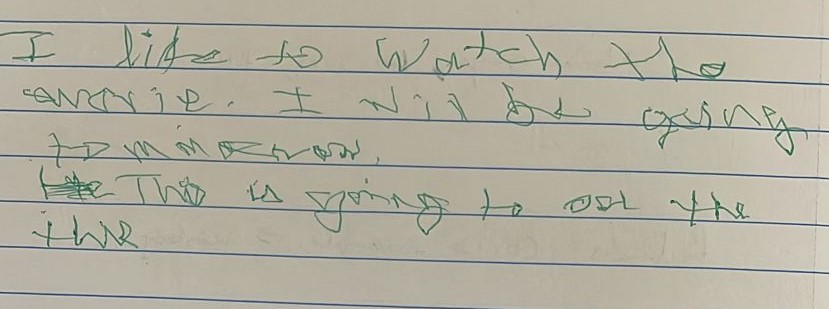 I like to watch the
I will be going
tominorrow.
This is going to the
the